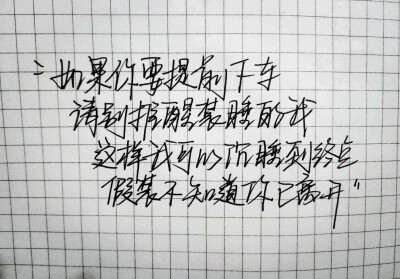 "如果你要提前下车
请别推醒装睡的我
这样我可以沉睡到终点
假装不知道你已离开"